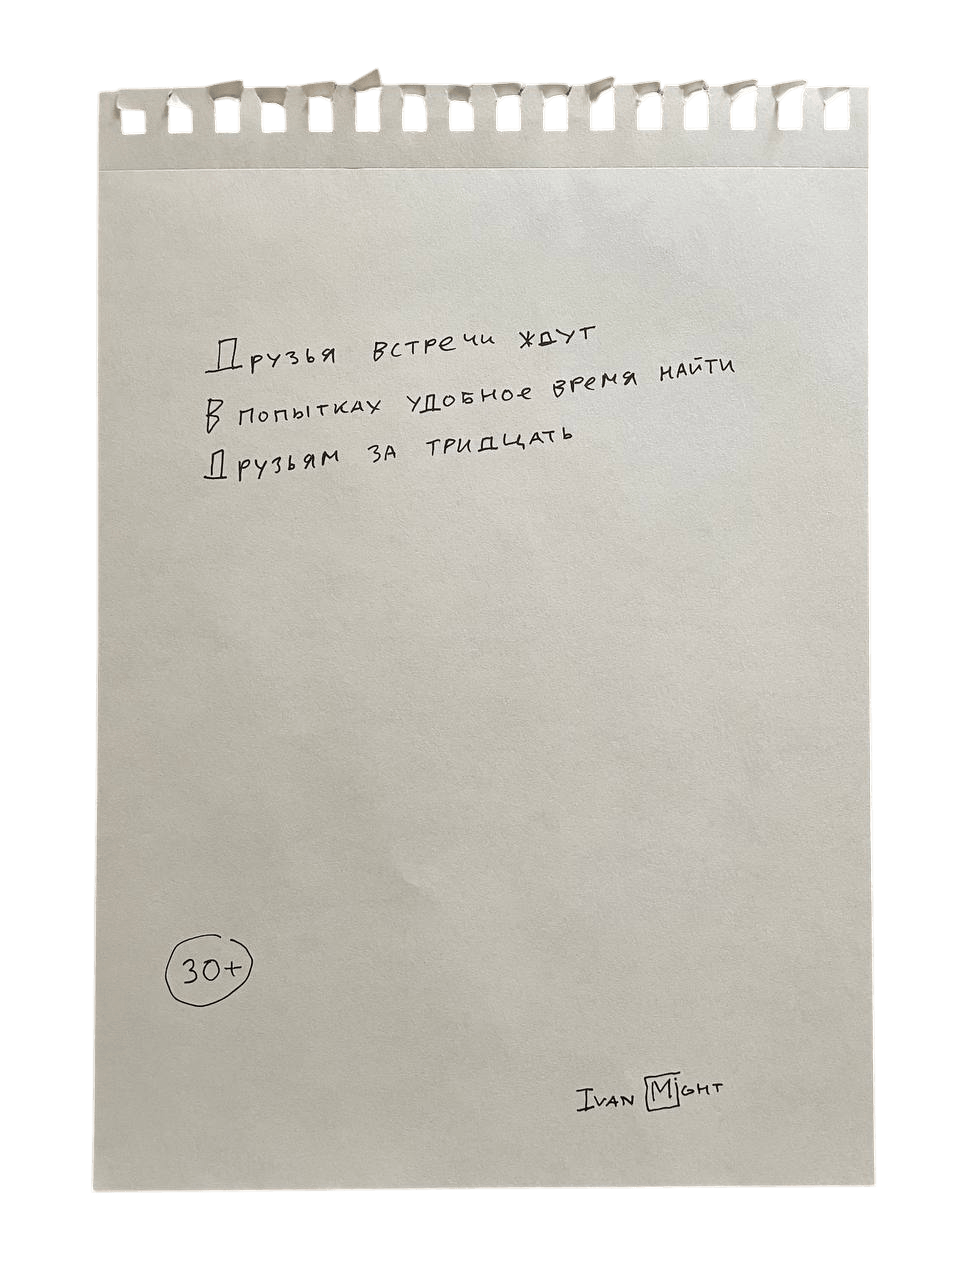 Друзья встречи ждут
В попытках удобное время найти
Друзьям за тридцать
30+
Ivan Might